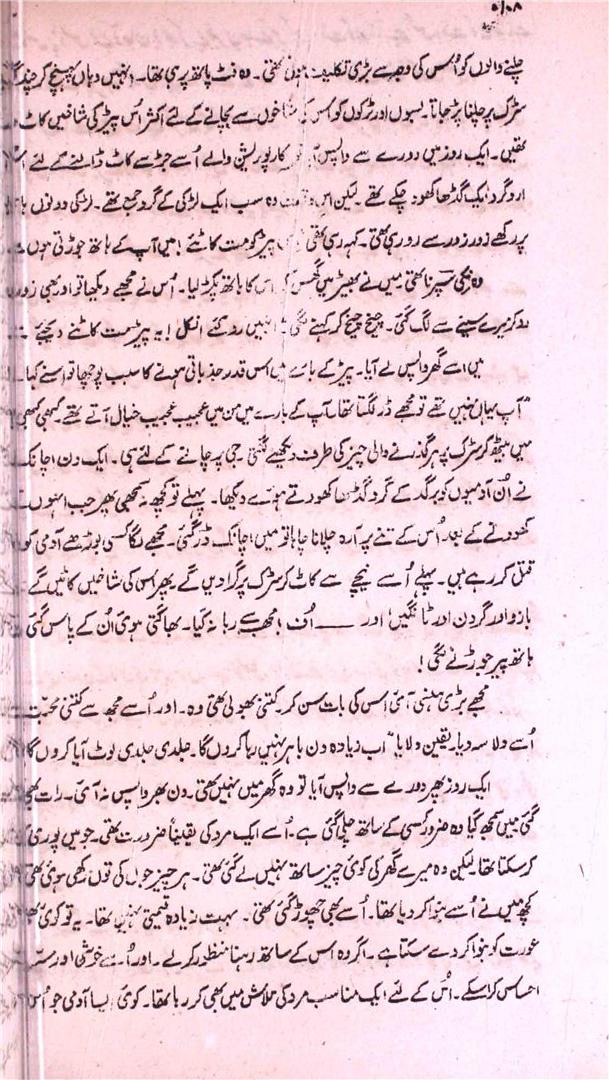 ۵/۰۸
چلنے والوں کو اُس کی وجہ سے بڑی تکلیف ہوتی تھی۔ وہ فٹ پاتھ پر ہی تھا۔ انہیں وہاں پہنچ کر چند
سڑک پر چلنا پڑ جاتا۔ بسوں اور ٹرکوں کو اُس کی شاخوں سے بچانے کے لئے اکثر اُس پیڑ کی شاخیں کاٹ
تھیں۔ ایک روز میں دورے سے واپس آیا تو کارپوریشن والے اُسے جڑ سے کاٹ ڈالنے کے لئے
اردگرد ایک گڈھا کھود چکے تھے۔ لیکن اس وقت وہ سب ایک لڑکی کے گرد جمع تھے۔ لڑکی دونوں
پر رکھے زور زور سے رو رہی تھی۔ کہہ رہی تھی پیڑ کو مت کاٹئے! میں آپ کے ہاتھ جوڑتی ہوں
وہ بچی سپنا تھی میں نے بھیڑ میں گھس کر اس کا ہاتھ پکڑ لیا۔ اُس نے مجھے دیکھا تو اور بھی زور
رو کر میرے سینے سے لگ گئی۔ چیخ چیخ کر کہنے لگی انہیں روکئے انکل! یہ پیڑ مت کاٹنے دیجئے
میں اسے گھر واپس لے آیا۔ پیڑ کے بارے میں اس قدر جذباتی ہونے کا سبب پوچھا تو اسنے کہا۔
"آپ یہاں نہیں تھے تو مجھے ڈر لگتا تھا۔ آپ کے بارے میں من میں عجیب عجیب خیال آتے تھے۔ کبھی کبھی
میں بیٹھ کر سڑک پر ہر گذرنے والی چیز کی طرف دیکھنے لگتی جی پرچانے کے لئے ہی۔ ایک دن اچانک
نے اُن آدمیوں کو برگد کے گرد گڈھا کھودتے ہوئے دیکھا۔ پہلے تو کچھ نہ سمجھی پھر جب انہوں
کھودنے کے بعد اُس کے تنے پر آرہ چلانا چاہا تو میں اچانک ڈر گئی۔ مجھے لگا کسی بوڑھے آدمی کو
قتل کر رہے ہیں۔ پہلے اُسے نیچے سے کاٹ کر سڑک پر گرا دیں گے پھر اس کی شاخیں کاٹیں گے
بازو اور گردن اور ٹانگیں اور ــــ اُف! مجھ سے رہا نہ گیا۔ بھاگتی ہوئی اُن کے پاس گئی
ہاتھ پیر جوڑنے لگی!
مجھے بڑی ہنسی آئی اس کی بات سن کر۔ کتنی بھولی تھی وہ۔ اور اُسے مجھ سے کتنی محبت
اُسے دلاسہ دیا۔ یقین دلایا "اب زیادہ دن باہر نہیں رہا کروں گا۔ جلدی جلدی لوٹ آیا کروں گا
ایک روز پھر دورے سے واپس آیا تو وہ گھر میں نہیں تھی۔ دن بھر واپس نہ آئی۔ رات
گئی میں سمجھ گیا وہ ضرور کسی کے ساتھ چلی گئی ہے۔ اُسے ایک مرد کی یقیناً ضرورت تھی۔ جو میں پوری
کر سکتا تھا۔ لیکن وہ میرے گھر کی کوئی چیز ساتھ نہیں لے گئی تھی۔ ہر چیز جوں کی توں رکھی ہوئی تھی
کچھ میں نے اُسے بنوا کر دیا تھا۔ اُسے بھی چھوڑ گئی تھی۔ بہت زیادہ قیمتی نہیں تھا۔ یہ تو کوئی
عورت کو بنوا کر دے سکتا ہے۔ اگر وہ اس کے ساتھ رہنا منظور کر لے۔ اور اُسے خوشی اور
احساس کرا سکے۔ اُس کے لئے ایک مناسب مرد کی تلاش میں بھی کر رہا تھا۔ کوئی ایسا آدمی جو اُس